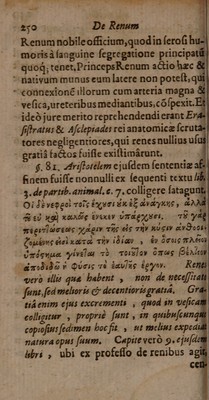 250 De Renum
Renum nobile officium, quod in serosi hu-
moris à sanguine segregatione principatũ
quoq; tenet, Princeps Renum actio hæc &
nativum munus eum latere non potest, qui
connexionẽ illorum cum arteria magna &
vesica, ureteribus mediantibus, cõspexit. Et
ideò jure merito reprehendendi erant Era-
sistratus & Asclepiades rei anatomicæ scruta-
tores negligentiores, qui renes nullius usus
gratiâ factos fuisse existimârunt.
§. 81. Aristotelem ejusdem sententiæ af-
finem fuisse nonnulli ex sequenti textu lib.
3. de partib. animal. c. 7. colligere satagunt.
Οἱ δὲ νεφροὶ τοῖς ἔχουσι ἐκ ἐξ ἀνάγκης, ἀλλὰ
τῦ εὖ καὶ καλῶς ἕνεκεν ὑπάρχουσι. τῆς γὰρ
περιττώσεως χάριν τῆς εἰς τὴν κύστιν ἀθροι-
ζομένης εἰσὶ κατὰ τὴν ἰδίαν, ἐν ὅσοις πλεῖον
ὑπόστημα γίνεται τὸ τοιοῦτον ὅπως βέλτιον
ἀποδιδῶ ἡ κύστις τὸ ἑαυτῆς ἔργον. Renes
verò illis qui habent, non de necessitate
sunt, sed melioris & decentioris gratiâ. Gra-
tiâ enim ejus excrementi, quod in vesicam
colligitur, propriè sunt, in quibuscunque
copiosius sedimen hoc fit, ut melius expediat
natura opus suum. Capite verò 9. ejusdem
libri, ubi ex professo de renibus agit,
cen-